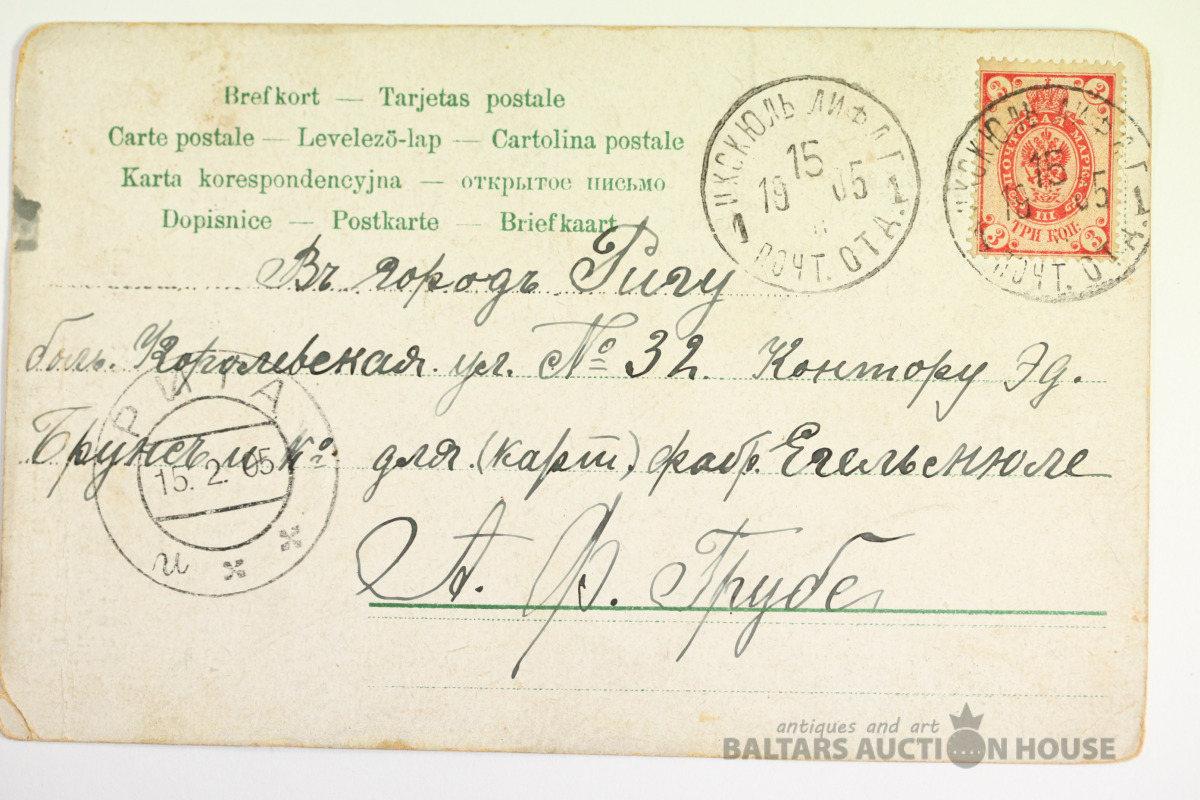 Brefkort — Tarjetas postale
Carte postale — Levelező-lap — Cartolina postale
Karta korespondencyjna — открытое письмо
Dopisnice — Postkarte — Briefkaart
ИКСКЮЛЬ ЛИФЛ. Г.
15
19 05
1 ПОЧТ. ОТД. 1
ИКСКЮЛЬ ЛИФЛ. Г.
15
19 05
ПОЧТ. ОТД. 1
ПОЧТОВАЯ МАРКА
III
ТРИ КОП.
3 3
Въ городъ Ригу
боль. Королевская ул. № 32. Контору Эд.
Брунсъ и Ко для (карт.) фабр. Егельснюле
А. Ф. Грубе
РИГА
15. 2. 05
и
antiques and art
BALTARS AUCTION HOUSE